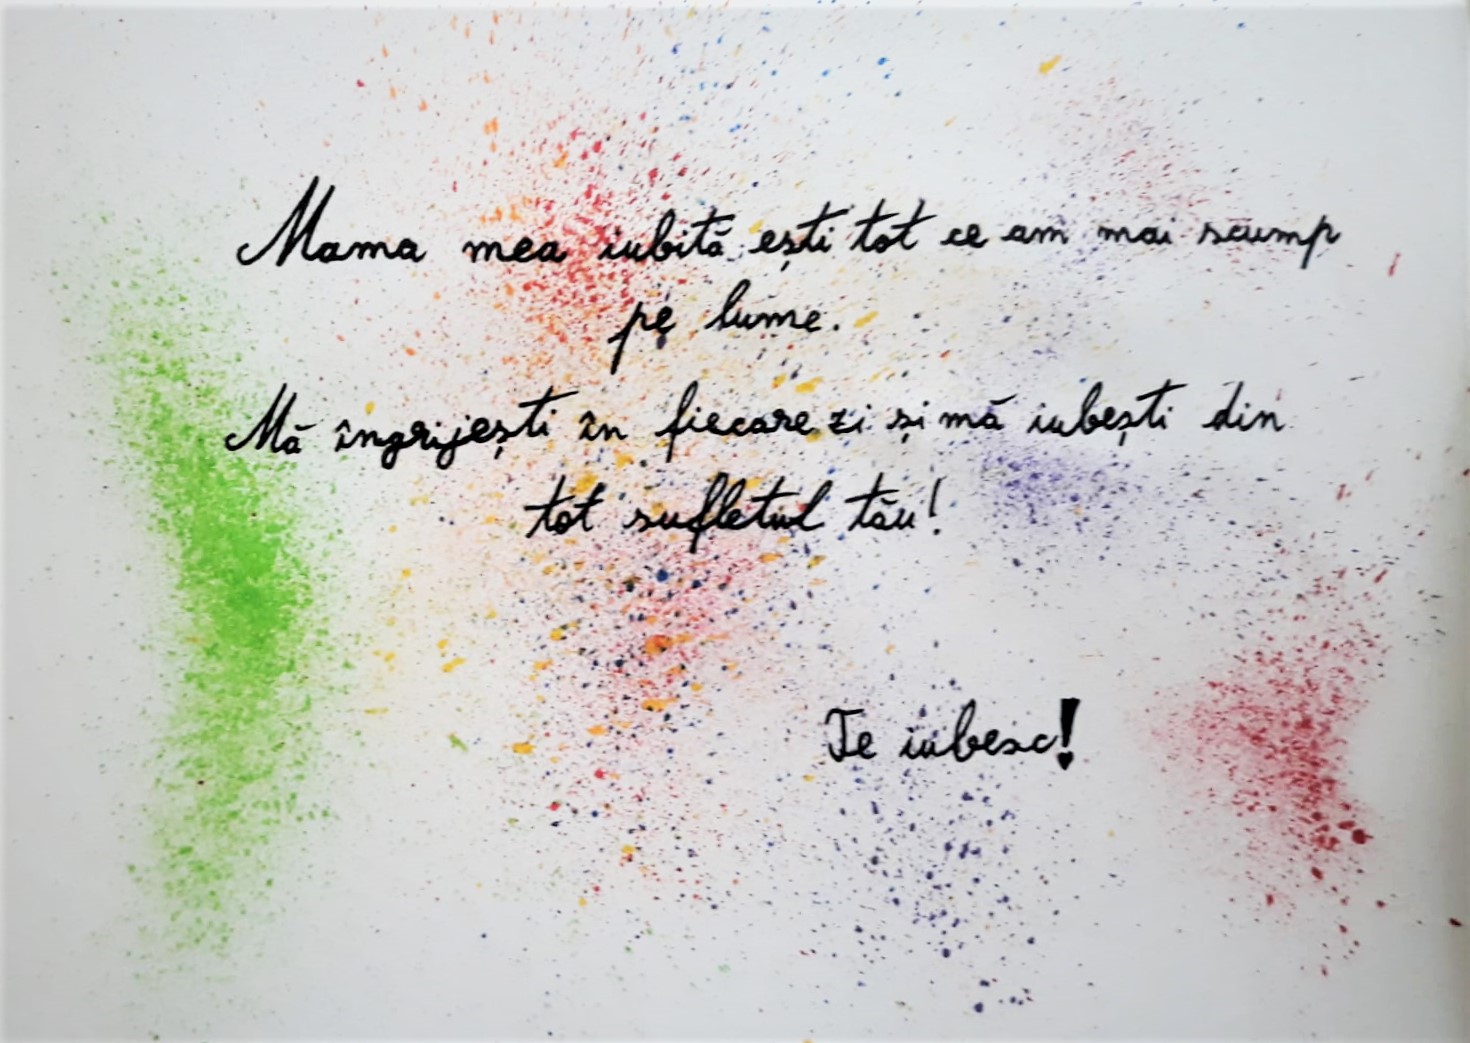 Mama mea iubită ești tot ce am mai scump
pe lume.
Mă îngrijești în fiecare zi și mă iubești din
tot sufletul tău!
Te iubesc!